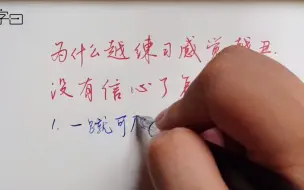 字日
为什么越练习感觉越丑
没有信心了
1. 一般就可